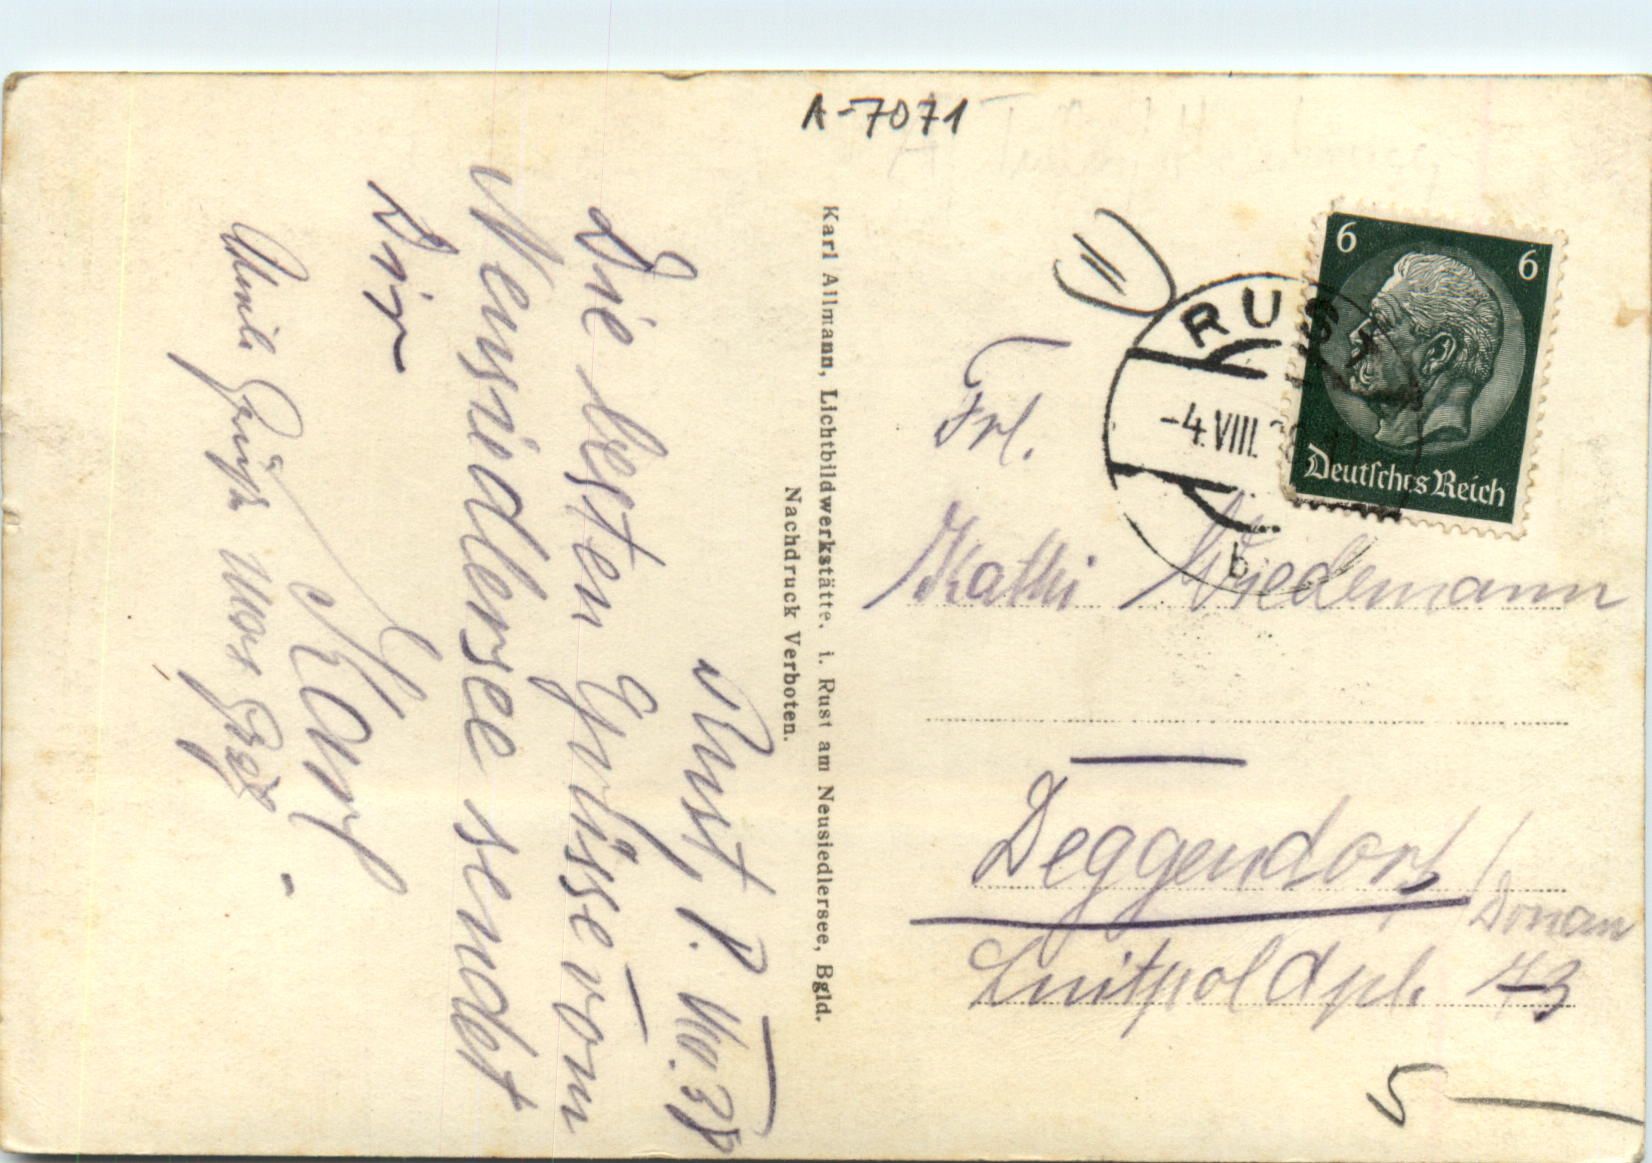 A-7071
Rust, 1. VIII. 38
Die besten Grüsse vom
Neusiedlersee sendet
Dir
Karl
Karl Allmann, Lichtbildwerkstätte. i. Rust am Neusiedlersee, Bgld.
Nachdruck Verboten.
11
RUST
-4.VIII.
b
6 6
Deutsches Reich
Frl.
Kathi Wiedemann
Deggendorf / Donau
Luitpoldpl. 73
5